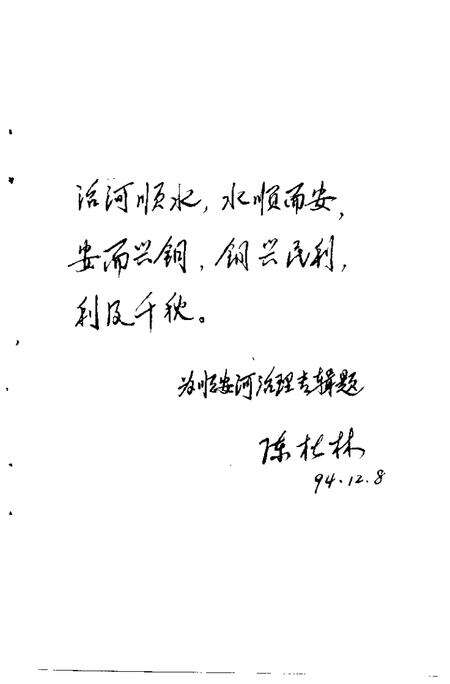 治河顺水，水顺而安，
安而兴铜，铜兴民利，
利及千秋。
为顺安河治理专辑题
陈杜林
94.12.8